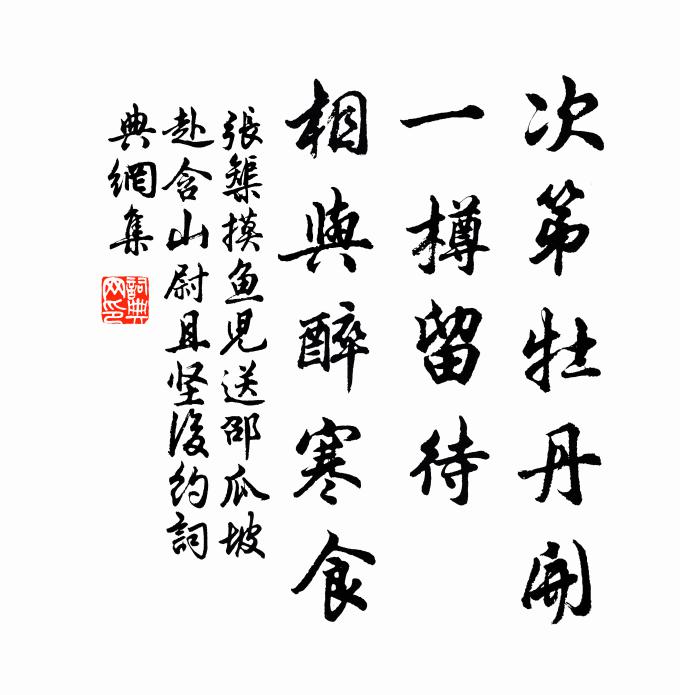 次第牡丹開
一樽留待
相與醉寒食
張榘摸鱼児送邵瓜坡
赴含山尉且坚後约詞
典網集
詞典网印